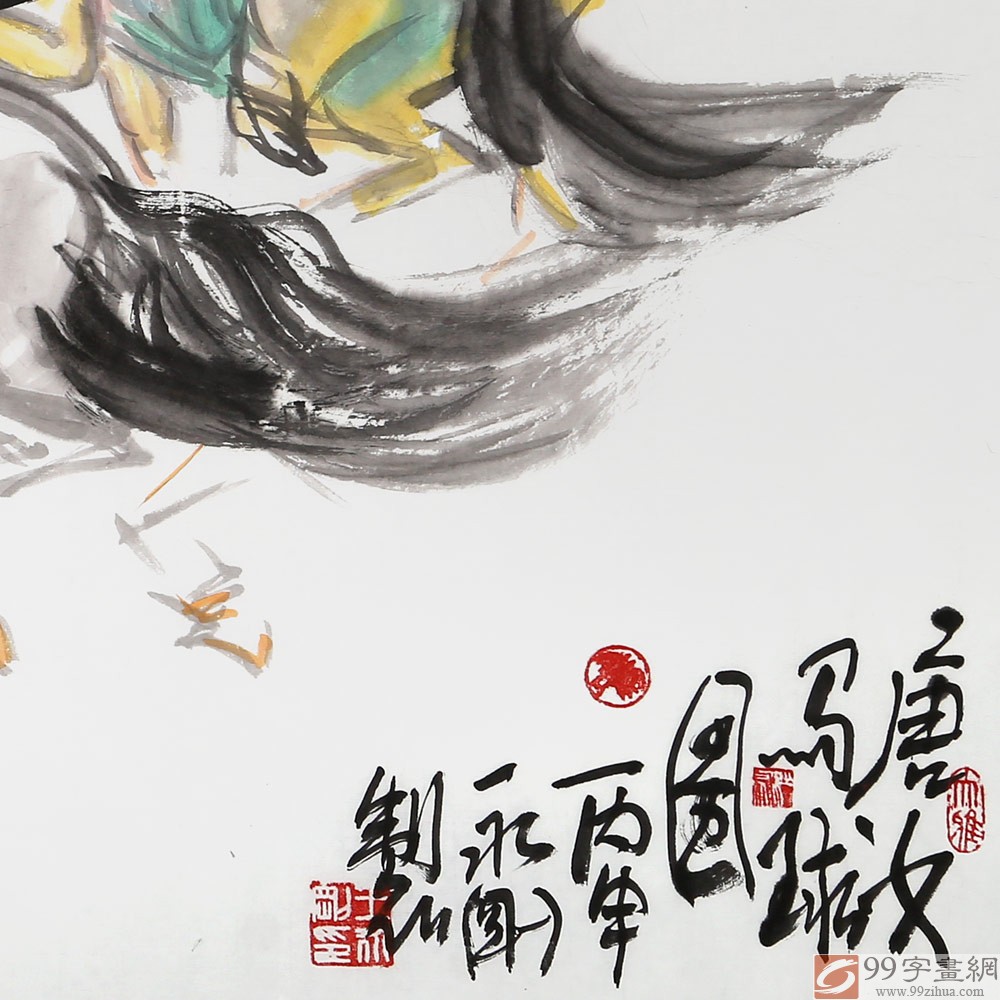 唐女
马球
圖
丙申
永剛
製
大雅
99字畫網
www.99zihua.com